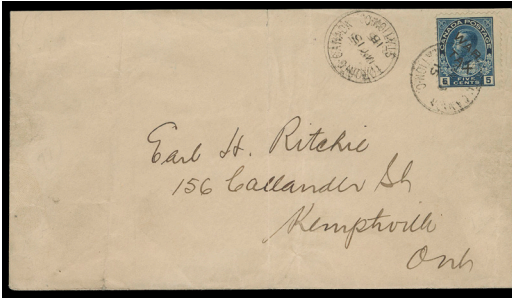 CANADA POSTAGE
5 FIVE CENTS 5
Earl H. Ritchie
156 Callander St
Kemptville
Ont